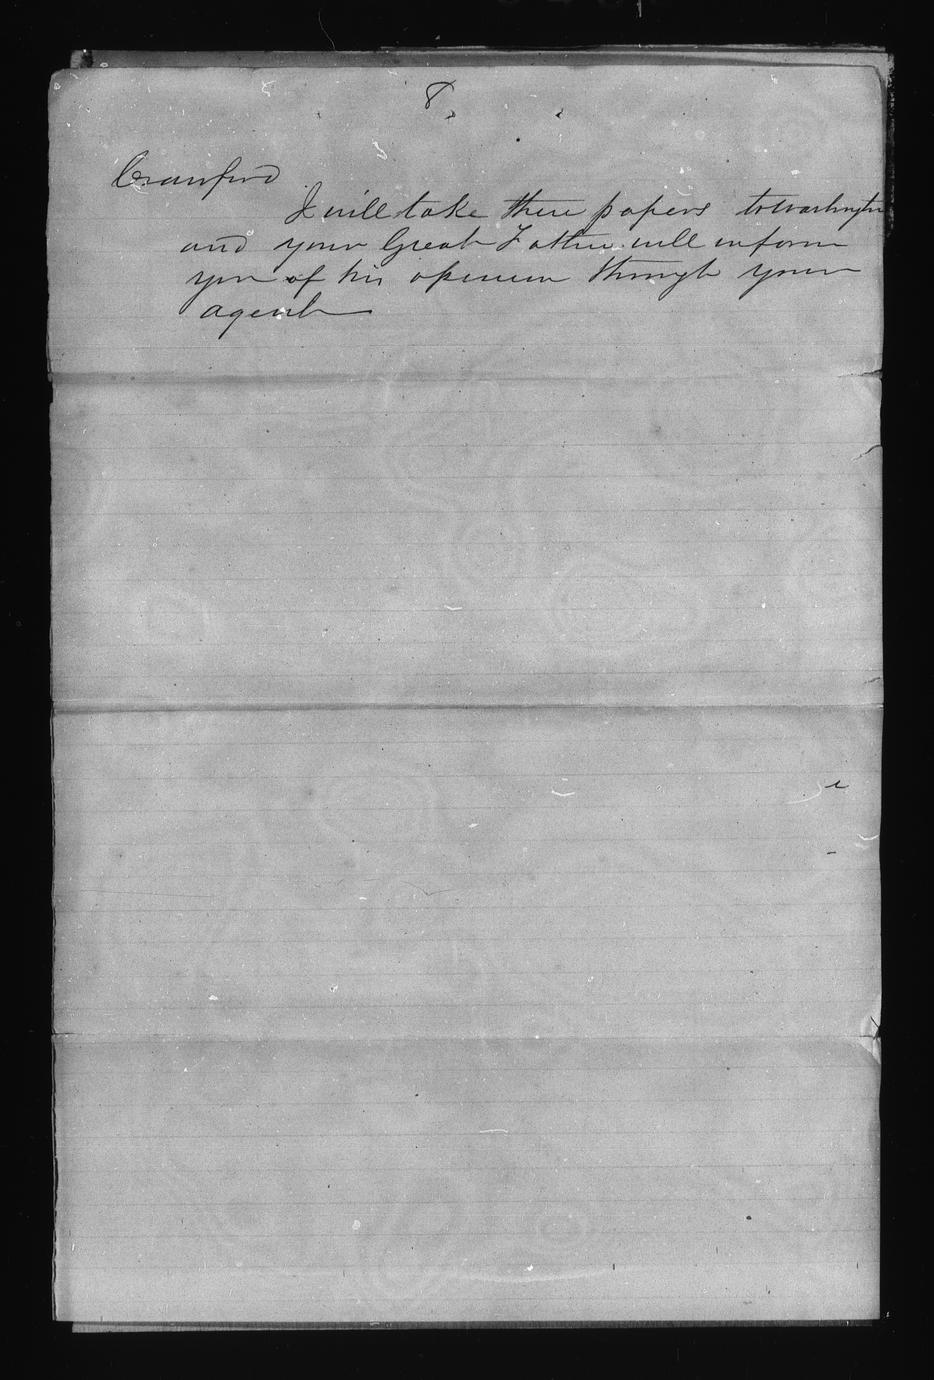 8
Cranford
I will take these papers to Washington
and your Great Father will inform
you of his opinion through your
agent